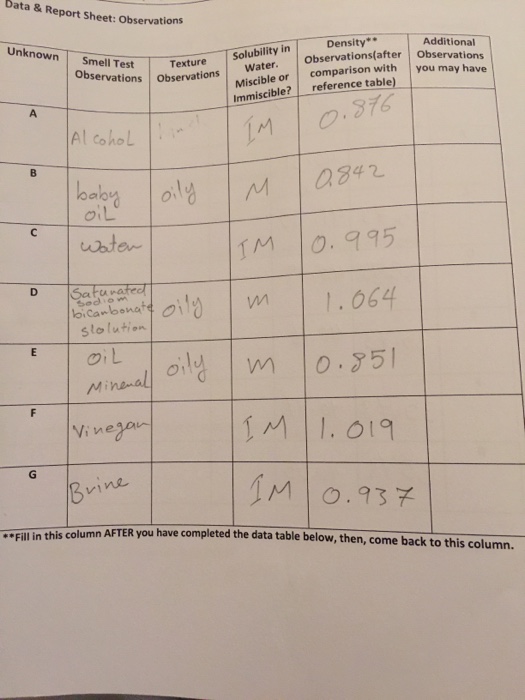 Data & Report Sheet: Observations
Unknown
Smell Test
Observations
Texture
Observations
Solubility in
Water.
Miscible or
Immiscible?
Density**
Observations(after
comparison with
reference table)
Additional
Observations
you may have
A
Alcohol
IM
0.876
B
baby
oil
oily
M
0.842
C
water
IM
0.995
D
Saturated
sodiom
bicarbonate
slolution
oily
m
1.064
E
oil
Mineral
oily
m
0.851
F
Vinegar
IM
1.019
G
Brine
IM
0.937
**Fill in this column AFTER you have completed the data table below, then, come back to this column.